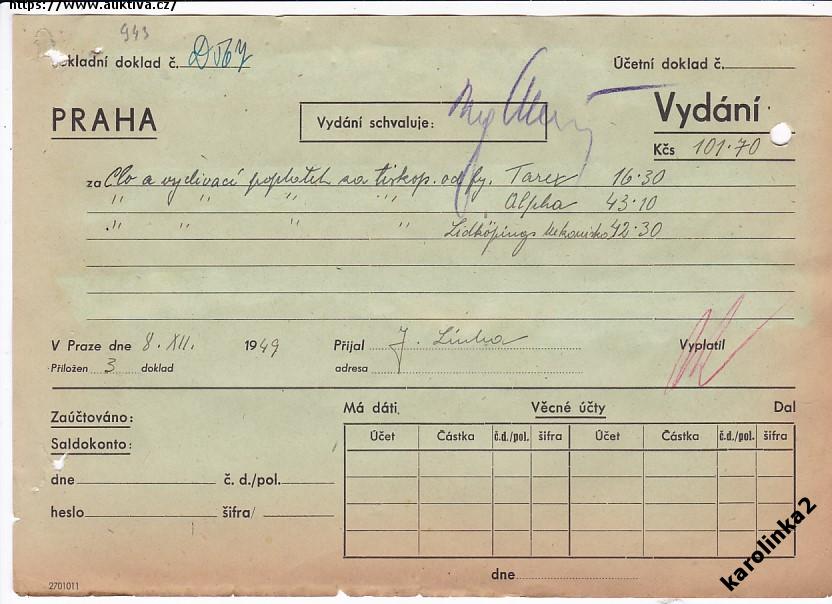 https://www.auktiva.cz/
943
kladní doklad č. D567
Účetní doklad č.
PRAHA
Vydání schvaluje:
Vydání
Kčs 101·70
za Clo a vyclívací poplatek za tiskop. od fy. Tarex 16·30
" " " " Alpha 43·10
" " " " Lidköpings Mekaniska 42·30
V Praze dne 8. XII. 1949 Přijal J. Vyplatil
Přiložen 3 doklad adresa
Zaúčtováno:
Saldokonto:
dne č. d./pol.
heslo šifra/
Má dáti Věcné účty Dal
Účet Částka č.d./pol. šifra Účet Částka č.d./pol. šifra
dne
2701011
karolinka2